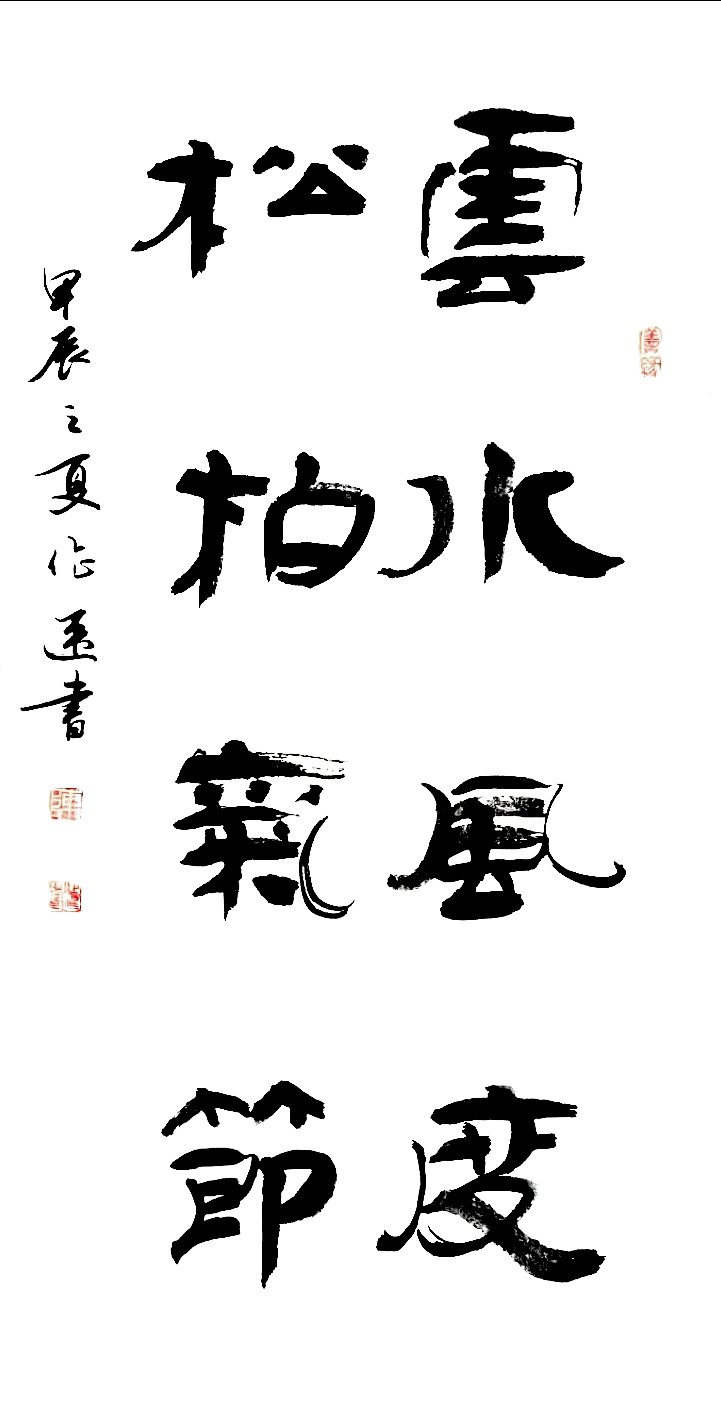 雲水風度
松柏氣節
甲辰之夏作㢲書